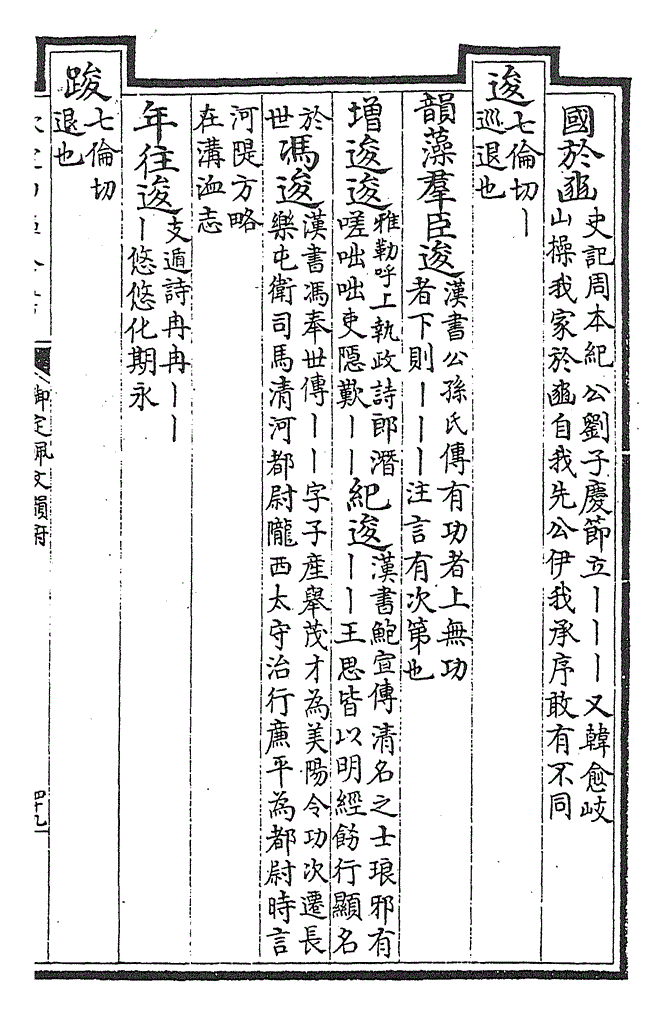 國於豳 史記周本紀公劉子慶節立丨丨丨又韓愈岐
山操我家於豳自我先公伊我承序敢有不同
逡 七倫切丨
巡退也
韻藻羣臣逡 漢書公孫氏傳有功者上無功
者下則丨丨丨注言有次第也
增逡逡 雅勒呼上執政詩郎潛
嗟咄咄吏隱歎丨丨
紀逡 漢書鮑宣傳清名之士琅邪有
丨丨王思皆以明經飭行顯名
於
世
馮逡 漢書馮奉世傳丨丨字子産舉茂才為美陽令功次遷長
樂屯衛司馬清河都尉隴西太守治行廉平為都尉時言
河隄方略
在溝洫志
年往逡 支遁詩冉冉丨丨
丨悠悠化期永
踆 七倫切
退也
御定佩文韻府
四十九